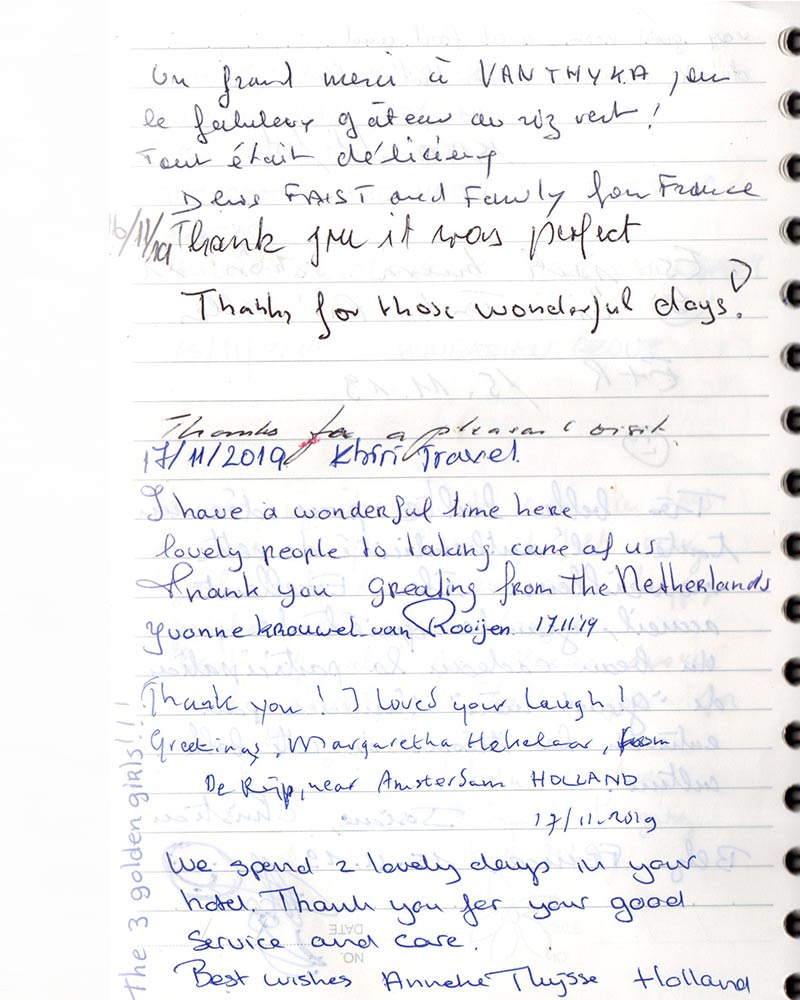 Un grand merci à VANTHYKA, pour
le fabuleux gâteau au riz vert!
Tout était délicieux
Denis FAIST and Family from France
/11/19
Thank you it was perfect
Thanks for those wonderful days!
Thanks for a pleasant visit.
17/11/2019 Khiri Travel.
I have a wonderful time here
lovely people to taking care of us
Thank you greating from the Netherlands
Yvonne Krouwel-van Rooijen 17.11.'19
Thank you! I loved your laugh!
Greetings, Margaretha Hekelaar, from
De Rijp, near Amsterdam HOLLAND
17/11.2019
The 3 golden girls!!!
We spend 2 lovely days in your
hotel. Thank you for your good
service and care.
Best wishes Anneke Thijsse Holland
DATE
NO.